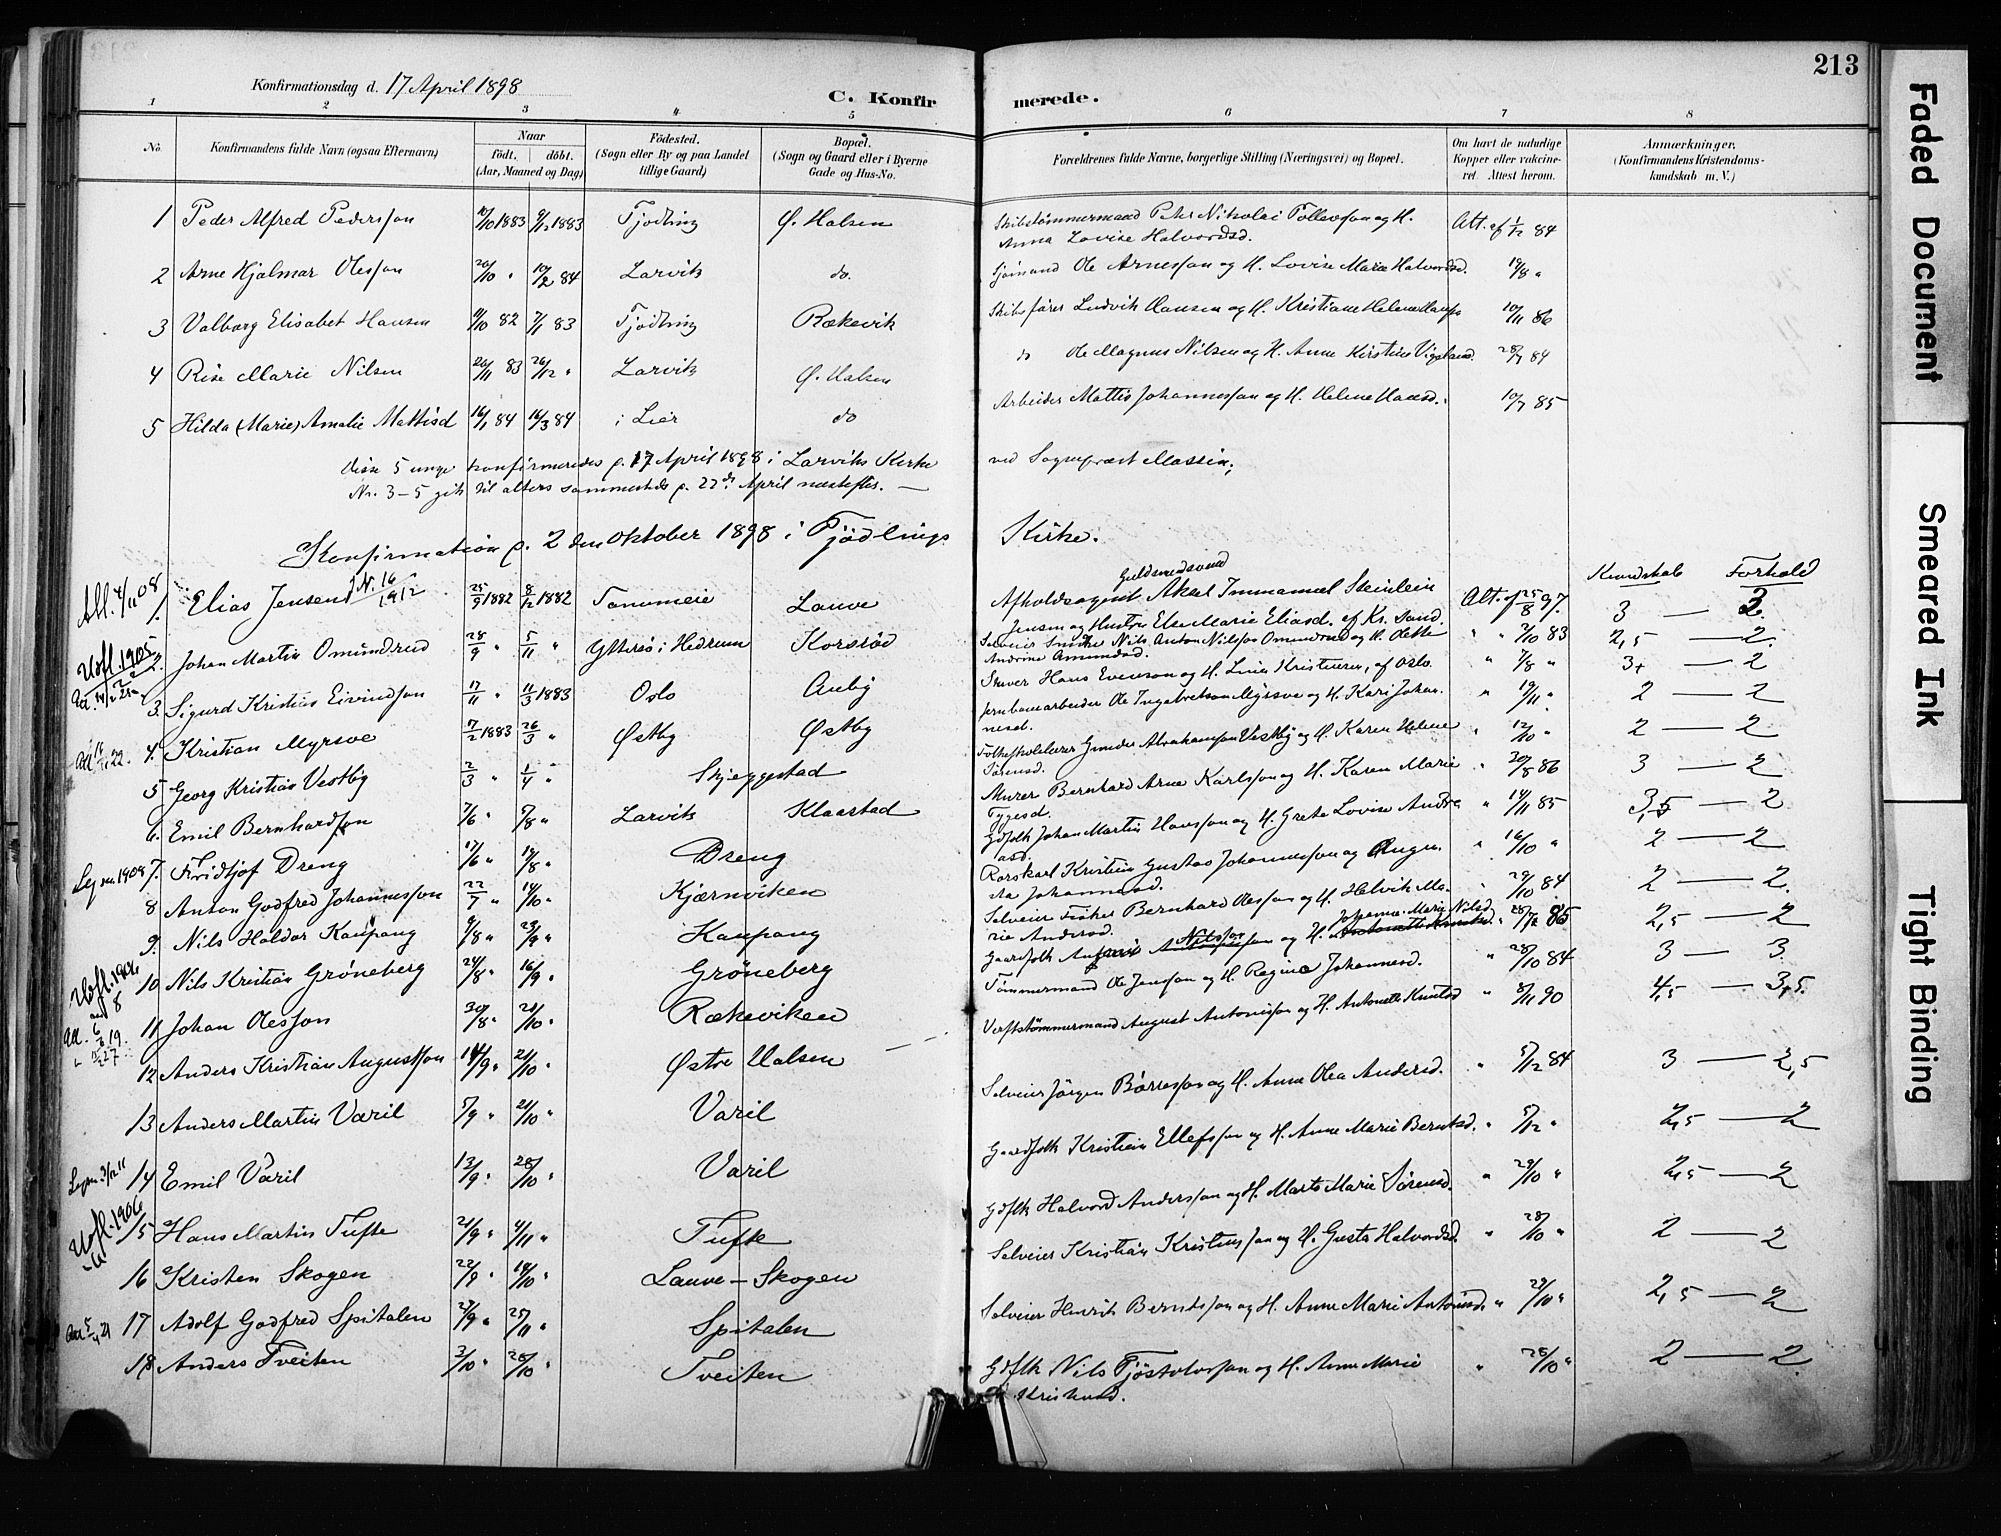 213
Konfirmationsdag d. 17 April 1898
C. Konfirmerede.
1 2 3 4 5 6 7 8
No. Konfirmandens fulde Navn (ogsaa Efternavn) Naar födt. döbt. (Aar, Maaned og Dag) Födested. (Sogn eller By og paa Landet tillige Gaard) Bopæl. (Sogn og Gaard eller i Byerne Gade og Hus-No. Forældrenes fulde Navne, borgerlige Stilling (Næringsvei) og Bopæl. Om havt de naturlige Kopper eller vakcineret. Attest herom. Anmærkninger. (Konfirmandens Kristendomskundskab m. V.)
1 Peder Alfred Pedersson 10/10 1883 9/12 1883 Tjödling Ø. Halsen Skibstømmermand Peter Nikolai Tollevson og H.
Anna Lovise Halvordsd. Att. af 1/12 84
2 Arne Hjalmar Olesson 20/10 " 10/2 84 Larvik do. Sjömand Ole Arnesson og H. Lovise Marie Halvordsd. 19/8 "
3 Valborg Elisabet Hansen 9/10 82 7/1 83 Tjödling Rækevik Skibsfører Ludvik Hansen og H. Kristiane Helene 10/11 86
4 Rise Marie Nilsen 20/11 83 26/12 " Larvik Ø. Halsen do Ole Magnus Nilsen og H. Anne Kirstine 28/7 84
5 Hilda (Marie) Amalie Mattisd 16/1 84 16/3 84 i Lier do Arbeider Mattis Johannesson og H. Helene Hansd. 10/7 85
Disse 5 unge konfirmeredes d. 17 April 1898 i Larviks Kirke ved Sogneprest Massin;
Nr. 3-5 gik til alters sammesteds d. 22de April næstefter. —
Konfirmation d. 2den Oktober 1898 i Tjödlings Kirke.
Kundskab Forhold
All. 4/11 08 1. Elias Jensen N. 16/1912 25/9 1882 8/12 1882 Tanumeie Lauve Guldsmedsvend
Afholdsagent Aksel Immanuel Steinlein
Jensen og Hustru Else Marie Eliasd. af Kr. Sand. Att. af 25/8 97. 3 — 2.
Utfl. 1905 2. Johan Martin Omundrud 28/9 " 5/11 " Yttersö i Hedrum Korsröd Selveier Smeke Nils Anton Nilsson Omundrud og H. Olette
Andrine Amundsd. " " 7/10 83 2,5 — 2.
3. Sigurd Kristius Eivindson 17/11 " 11/3 1883 Oslo Auby Skriver Hans Evenson og H. Lina Kristensen, af Oslo. " 7/8 " 3+ — 2
4. Kristian Myrsve 17/2 1883 26/3 " Østby Østby Jernbanearbeider Ole Ingebretson Myrsve og H. Kari Johannesd. " 19/11 " 2 — 2
5 Georg Kristian Vestby 2/3 " 1/4 " Skjeggestad Folkeskolelærer Gunder Abrahamson Vestby og H. Karen Helene
Sörensd. " 12/10 " 2 — 2
6. Emil Bernhardson 7/6 " 5/8 " Larvik Klaastad Murer Bernhard Arne Karlsson og H. Karen Marie
Tygesd. " 20/8 86 3 — 2
Legm. 1908 7. Fridtjof Dreng 17/6 " 19/8 " Dreng Gdfolk Johan Martin Hansson og H. Grete Lovise Andreasd. " 14/11 85 3,5 — 2
8 Anton Godfred Johannesson 22/7 " 14/10 " Kjærnviken Rorskarl Kristian Gustav Johannesson og Augusta Johannesd. " 16/10 " 2 — 2
9. Nils Haldor Kaupang 9/8 " 23/9 " Kaupang Selveier Fisker Bernhard Olesson og H. Helvik Marie Andersd. " 29/10 84 2 — 2.
Utfl. 1906 10 Nils Kristian Gröneberg 24/8 " 16/9 " Gröneberg Gaardfolk Nilsson og H. Johanne Marie Nilsd. " 28/12 85 2,5 — 2
11 Johan Olesson 30/8 " 21/10 " Rækeviken Tömmermand Ole Jensson og H. Regine Johannesd. " 28/10 84 3 — 3.
12 Anders Kristian Augustsson 14/9 " 21/10 " Østre Halsen Verftstömmermand August Antonisson og H. Antonette Knutsd " 8/11 90 4,5 — 3,5.
13 Anders Martin Varil 5/9 " 21/10 " Varil Selveier Jörgen Börresson og H. Anne Olea Andersd. " 5/12 84 3 — 2,5
Legm. 3/12 11 14 Emil Varil 13/9 " 28/10 " Varil Gaardfolk Kristian Ellefsson og H. Anne Marie Berntsd. " 5/12 " 2,5 — 2
Utfl. 1906 15 Hans Martin Tufte 21/9 " 4/11 " Tufte Gdflk Halvord Andersson og H. Marte Marie Sörensd. " 29/10 " 2,5 — 2
16 Kristen Skogen 22/9 " 14/10 " Lauve - Skogen Selveier Kristian Kristensson og H. Gusta Halvordsd. " 28/10 " 2 — 2
17 Adolf Godfred Spitalen 27/9 " 25/11 " Spitalen Selveier Henrik Berntsson og H. Anne Marie Antonisd. " 29/10 " 2,5 — 2
18 Anders Tveiten 3/10 " 28/10 " Tveiten Gdflk Nils Tjöstolvsson og H. Anne Marie
Kristensd. " 28/10 " 2 — 2
Faded Document
Smeared Ink
Tight Binding